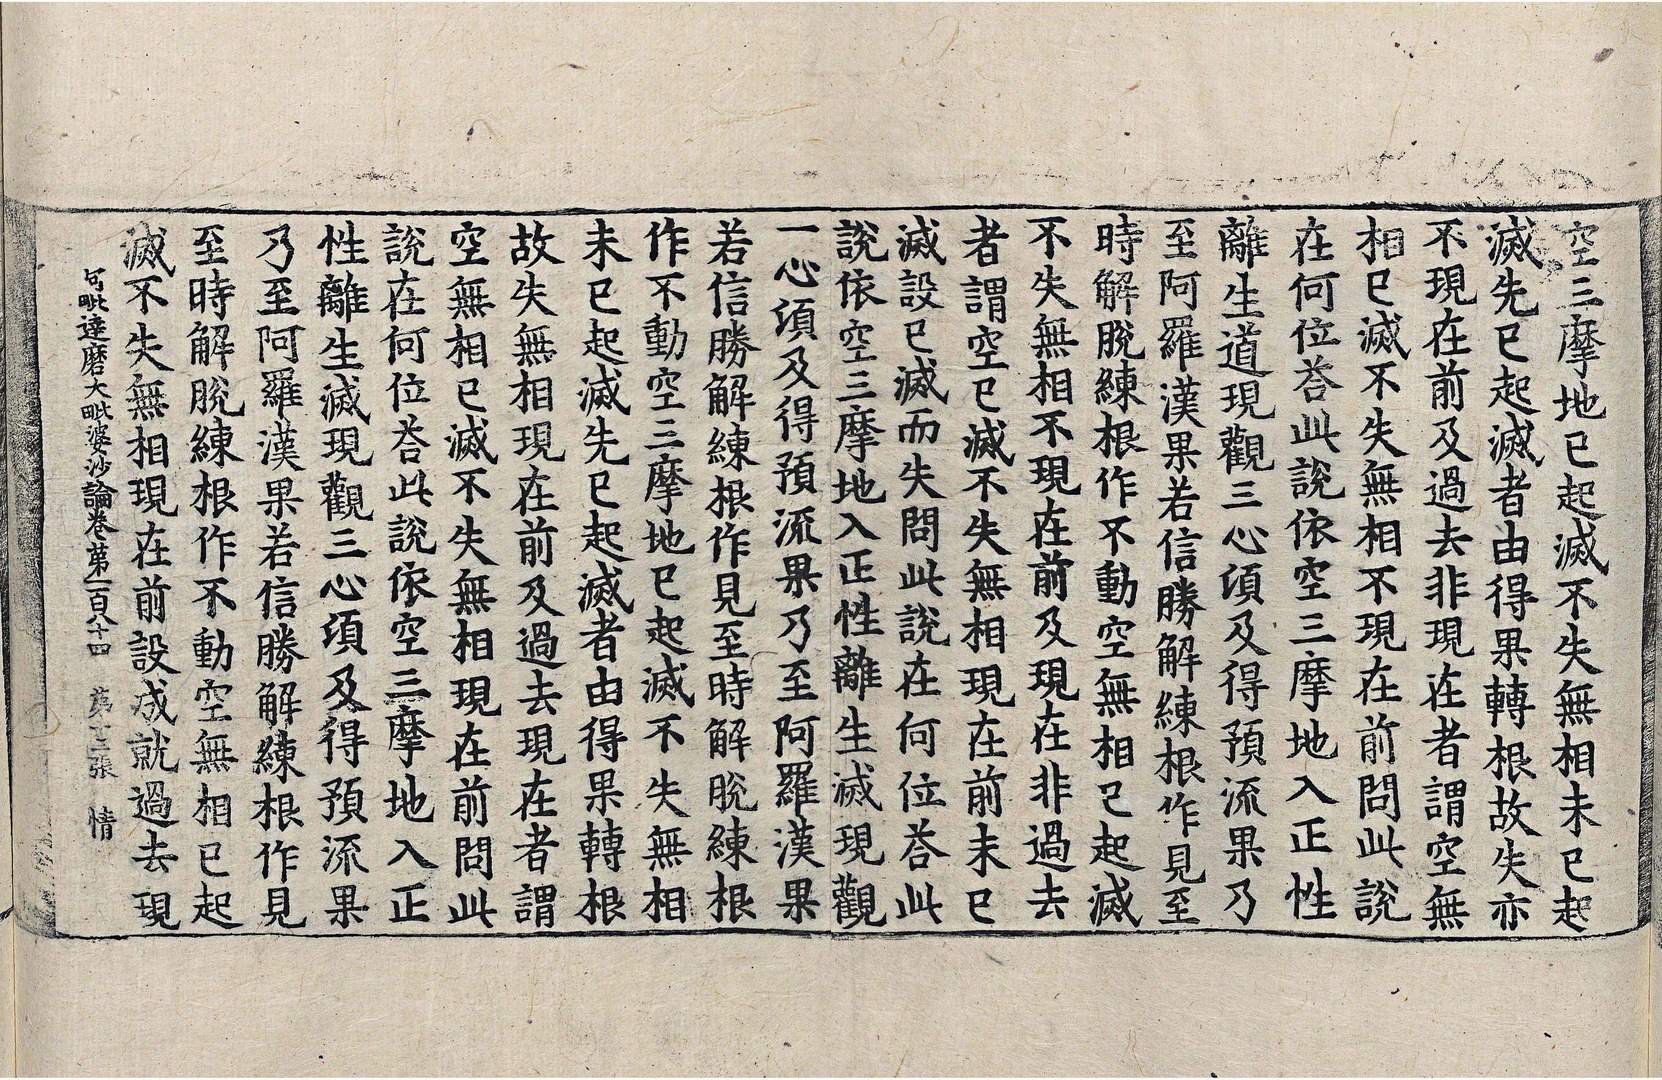 空三摩地已起滅不失無相未已起
滅先已起滅者由得果轉根故失亦
不現在前及過去非現在者謂空無
相已滅不失無相不現在前問此說
在何位荅此說依空三摩地入正性
離生道現觀三心頃及得預流果乃
至阿羅漢果若信勝解練根作見至
時解脫練根作不動空無相已起滅
不失無相不現在前及現在非過去
者謂空已滅不失無相現在前未已
滅設已滅而失問此說在何位荅此
說依空三摩地入正性離生滅現觀
一心頃及得預流果乃至阿羅漢果
若信勝解練根作見至時解脫練根
作不動空三摩地已起滅不失無相
未已起滅先已起滅者由得果轉根
故失無相現在前及過去現在者謂
空無相已滅不失無相現在前問此
說在何位荅此說依空三摩地入正
性離生滅現觀三心頃及得預流果
乃至阿羅漢果若信勝解練根作見
至時解脫練根作不動空無相已起
滅不失無相現在前設成就過去現
毗達磨大毗婆沙論卷第一百八十四 第十二張 情